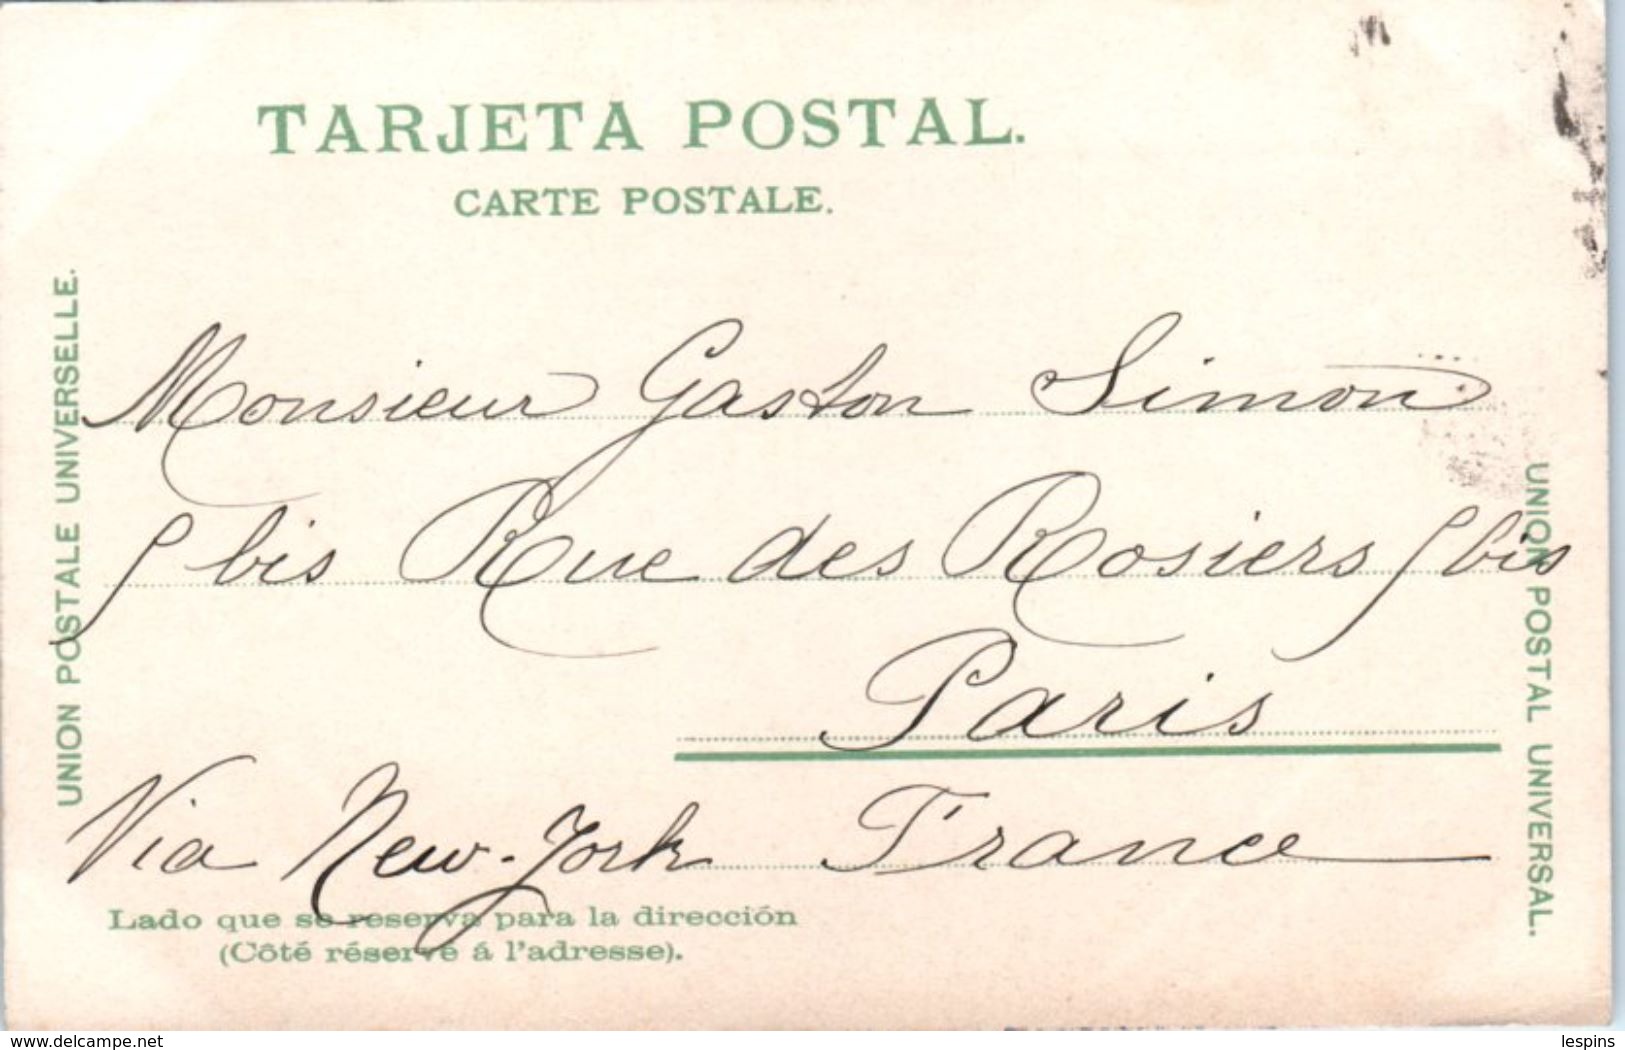 TARJETA POSTAL.
CARTE POSTALE.
UNION POSTALE UNIVERSELLE.
Monsieur Gaston Simon
9 bis Rue des Rosiers 9 bis
Paris
Via New-York France
UNION POSTAL UNIVERSAL.
Lado que se reserva para la dirección
(Côté réservé á l'adresse).
www.delcampe.net
lespins